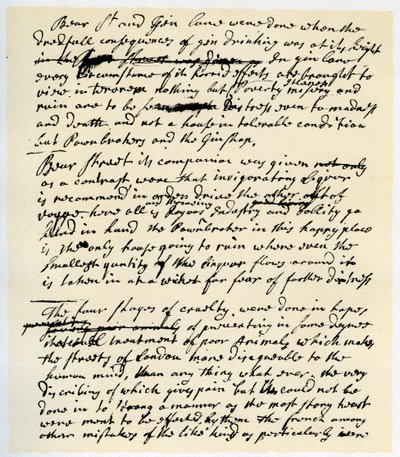 Bear St and Gin Lane were done when the
dredfull consequences of gin drinking was at its hight
In gin lane
every circumstance of its horid effects are brought to
view in terorem nothing but Poverty misery and
ruin are to be seen Distress even to madness
and death and not a house in tolerable condition
but Pawnbrokers and the Ginshop.
Bear Street its companion was given not only
as a contrast were that invigorating liquor
is recommend in order drive the other out of
vogue. here all is Joyous Industry and Jollity go
hand in hand the Pawnbroker in this happy place
is the only house going to ruin where even the
smallest quntity of the liquor flows around it
is taken in at a wicket for fear of farther distress
The four stages of cruelty, were done in hopes
of preventing in some degree
that cruel treatment of poor Animals which makes
the streets of London more disagreable to the
human mind, than any thing what ever. the very
discribing of which gives pain but this could not be
done in so strong a manner as the most stony heart
were ment to be effected by them the french among
other mistakes of the like kind as particularly were